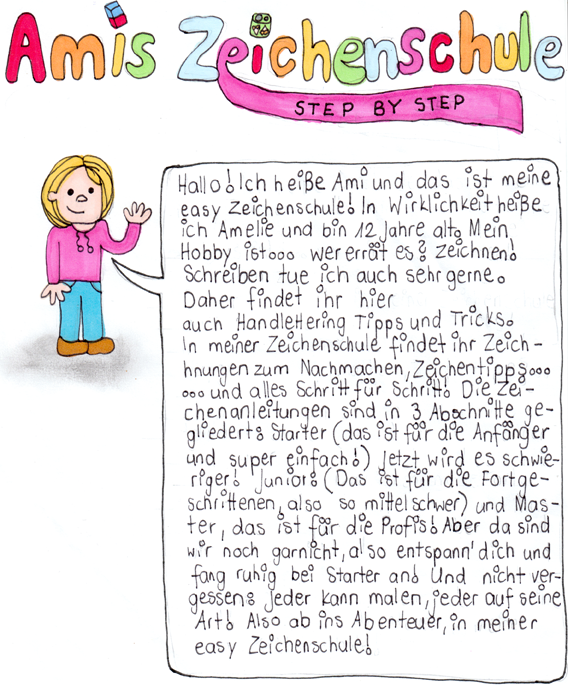 Amis Zeichenschule
STEP BY STEP
Hallo! Ich heiße Ami und das ist meine
easy Zeichenschule! In Wirklichkeit heiße
ich Amelie und bin 12 Jahre alt. Mein
Hobby ist... wer errät es? Zeichnen!
Schreiben tue ich auch sehr gerne.
Daher findet ihr hier
auch Handlettering Tipps und Tricks.
In meiner Zeichenschule findet ihr Zeich-
hnungen zum Nachmachen, Zeichentipps...
... und alles Schritt für Schritt! Die Zei-
chenanleitungen sind in 3 Abschnitte ge-
gliedert: Starter (das ist für die Anfänger
und super einfach!) Jetzt wird es schwie-
riger! Junior: (Das ist für die Fortge-
schrittenen, also so mittelschwer) und Mas-
ter, das ist für die Profis! Aber da sind
wir noch garnicht, also entspann' dich und
fang ruhig bei Starter an! Und nicht ver-
gessen: Jeder kann malen, jeder auf seine
Art! Also ab ins Abenteuer, in meiner
easy Zeichenschule!